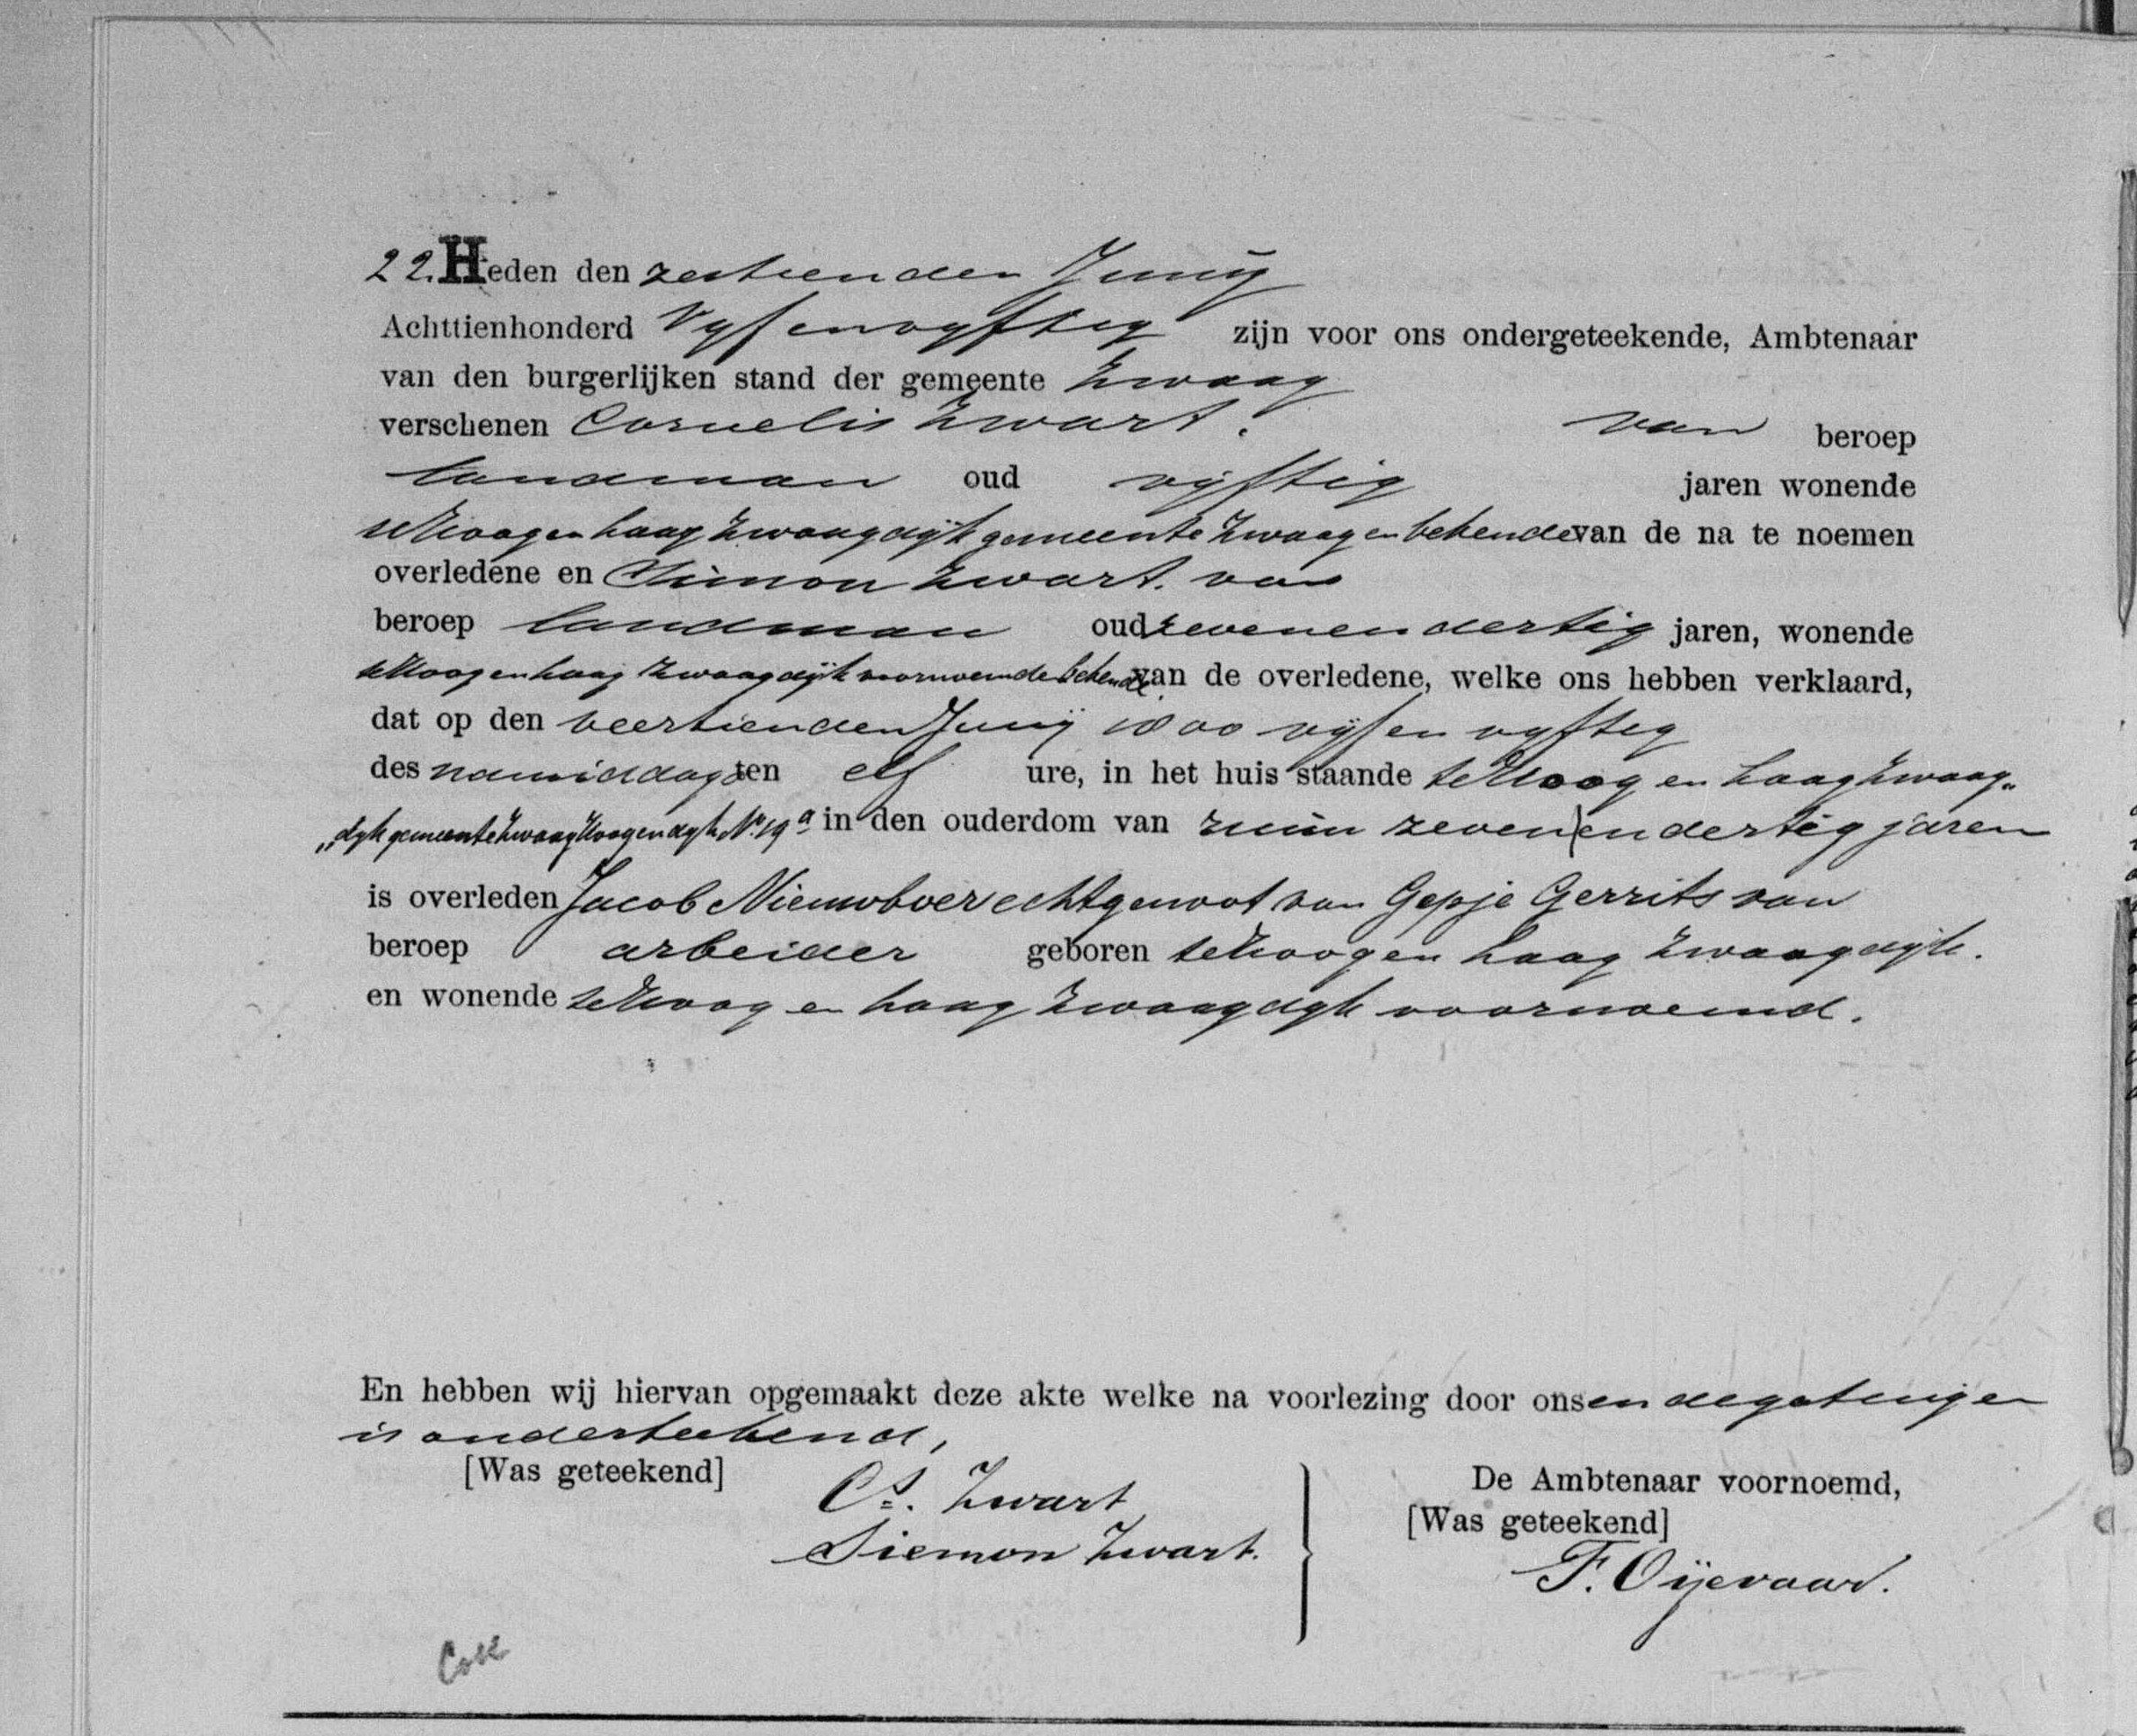 22. Heden den zestienden Junij
Achttienhonderd Vijfenvijftig zijn voor ons ondergeteekende, Ambtenaar
van den burgerlijken stand der gemeente Zwaag
verschenen Cornelis Zwart. van beroep
landman oud vijftig jaren wonende
te Hoog en Laag Zwaagdijk gemeente Zwaag en bekende van de na te noemen
overledene en Simon Zwart. van
beroep landman oud zevenendertig jaren, wonende
te Hoog en Laag Zwaagdijk voornoemde bekende van de overledene, welke ons hebben verklaard,
dat op den veertienden Junij 1800 vijf en vijftig
des namiddags ten elf ure, in het huis staande te Hoog en Laag Zwaag„
„dijk gemeente Zwaag Hoogendijk No. 19a in den ouderdom van ruim zeven en dertig jaren
is overleden Jacob Nieuwboer echtgenoot van Gepje Gerrits van
beroep arbeider geboren te Hoog en Laag Zwaagdijk.
en wonende te Hoog en Laag Zwaagdijk voornoemd.
En hebben wij hiervan opgemaakt deze akte welke na voorlezing door ons en de getuigen
is onderteekend,
[Was geteekend]
Cs. Zwart
Siemon Zwart.
De Ambtenaar voornoemd,
[Was geteekend]
F. Oijevaar.